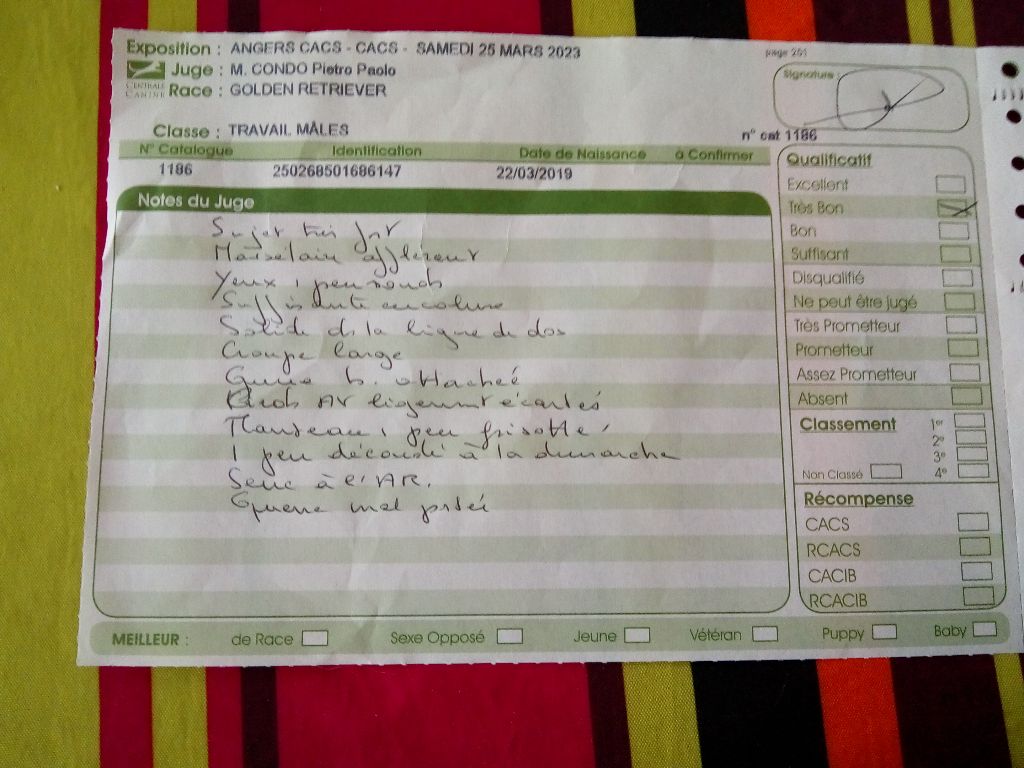 Exposition : ANGERS CACS - CACS - SAMEDI 25 MARS 2023
page 251
CENTRALE CANINE
Juge : M. CONDO Pietro Paolo
Race : GOLDEN RETRIEVER
Signature :
Classe : TRAVAIL MÂLES
n° cat 1186
N° Catalogue Identification Date de Naissance à Confirmer
1186 250268501686147 22/03/2019
Notes du Juge
Sujet très
Yeux 1 peu ronds
Suffisante encolure
Solide ds la ligne de dos
Croupe large
b. attachée
AV légèrement écartés
Manteau 1 peu frisotté
1 peu décousu à la démarche
Serré à l'AR.
Queue mal portée
Qualificatif
Excellent
Très Bon
Bon
Suffisant
Disqualifié
Ne peut être jugé
Très Prometteur
Prometteur
Assez Prometteur
Absent
Classement 1er
2e
3e
Non Classé 4e
Récompense
CACS
RCACS
CACIB
RCACIB
MEILLEUR : de Race Sexe Opposé Jeune Vétéran Puppy Baby